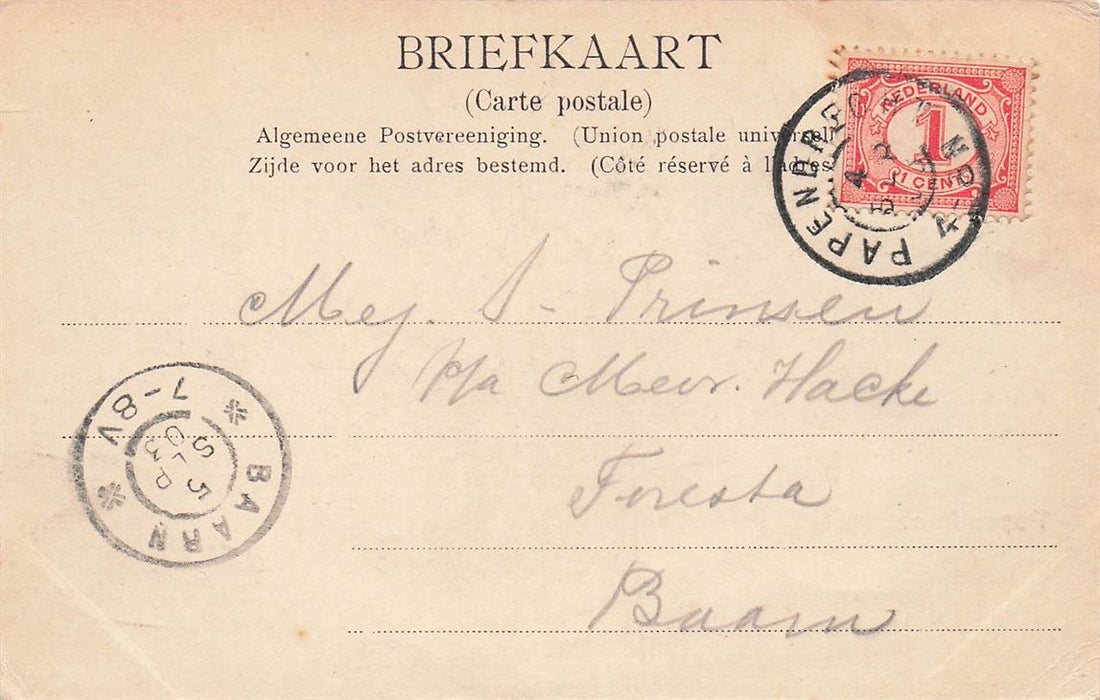 BRIEFKAART
(Carte postale)
Algemeene Postvereeniging. (Union postale universell
Zijde voor het adres bestemd. (Côté réservé à l'adres
NEDERLAND
1
1 CENT
PAPENDRECHT
4 SEP
4-5N
Mej. S. Prinsen
p/a Mevr. Hacke
Foresta
Baarn
BAARN
5 SEP 03
7-8V